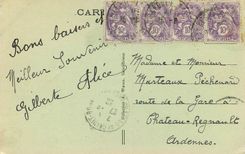 CAR
Bons baisers et
Meilleur Souvenir
Gilberte Alice
Madame et Monsieur
Marteaux Péchenard
route de la Gare
Château-Regnault
Ardennes.